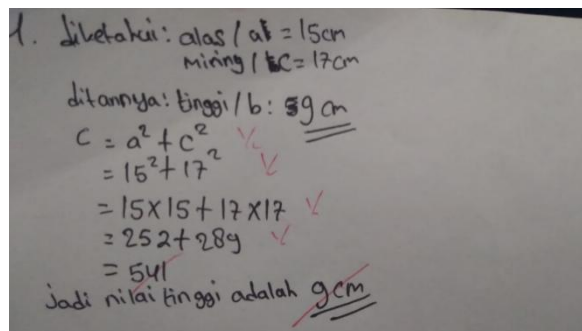 1. diketahui: alas / a = 15cm
miring / C = 17cm
ditannya: tinggi / b: 9 cm
C = a² + c²
= 15² + 17²
= 15 x 15 + 17 x 17
= 252 + 289
= 541
Jadi nilai tinggi adalah 9cm